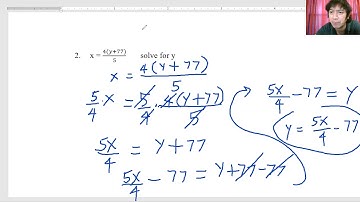 2. x = 4(y+77)/5 solve for y
x = 4(y+77)/5
5/4 · x = 5/4 · 4(y+77)/5
5x/4 = y+77
5x/4 - 77 = y+77-77
5x/4 - 77 = y
y = 5x/4 - 77